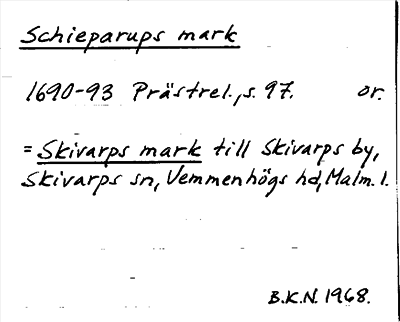 Schieparups mark
1690-93 Prästrel., s. 97. or.
= Skivarps mark till Skivarps by,
Skivarps sn, Vemmenhögs hd, Malm. l.
B.K.N. 1968.